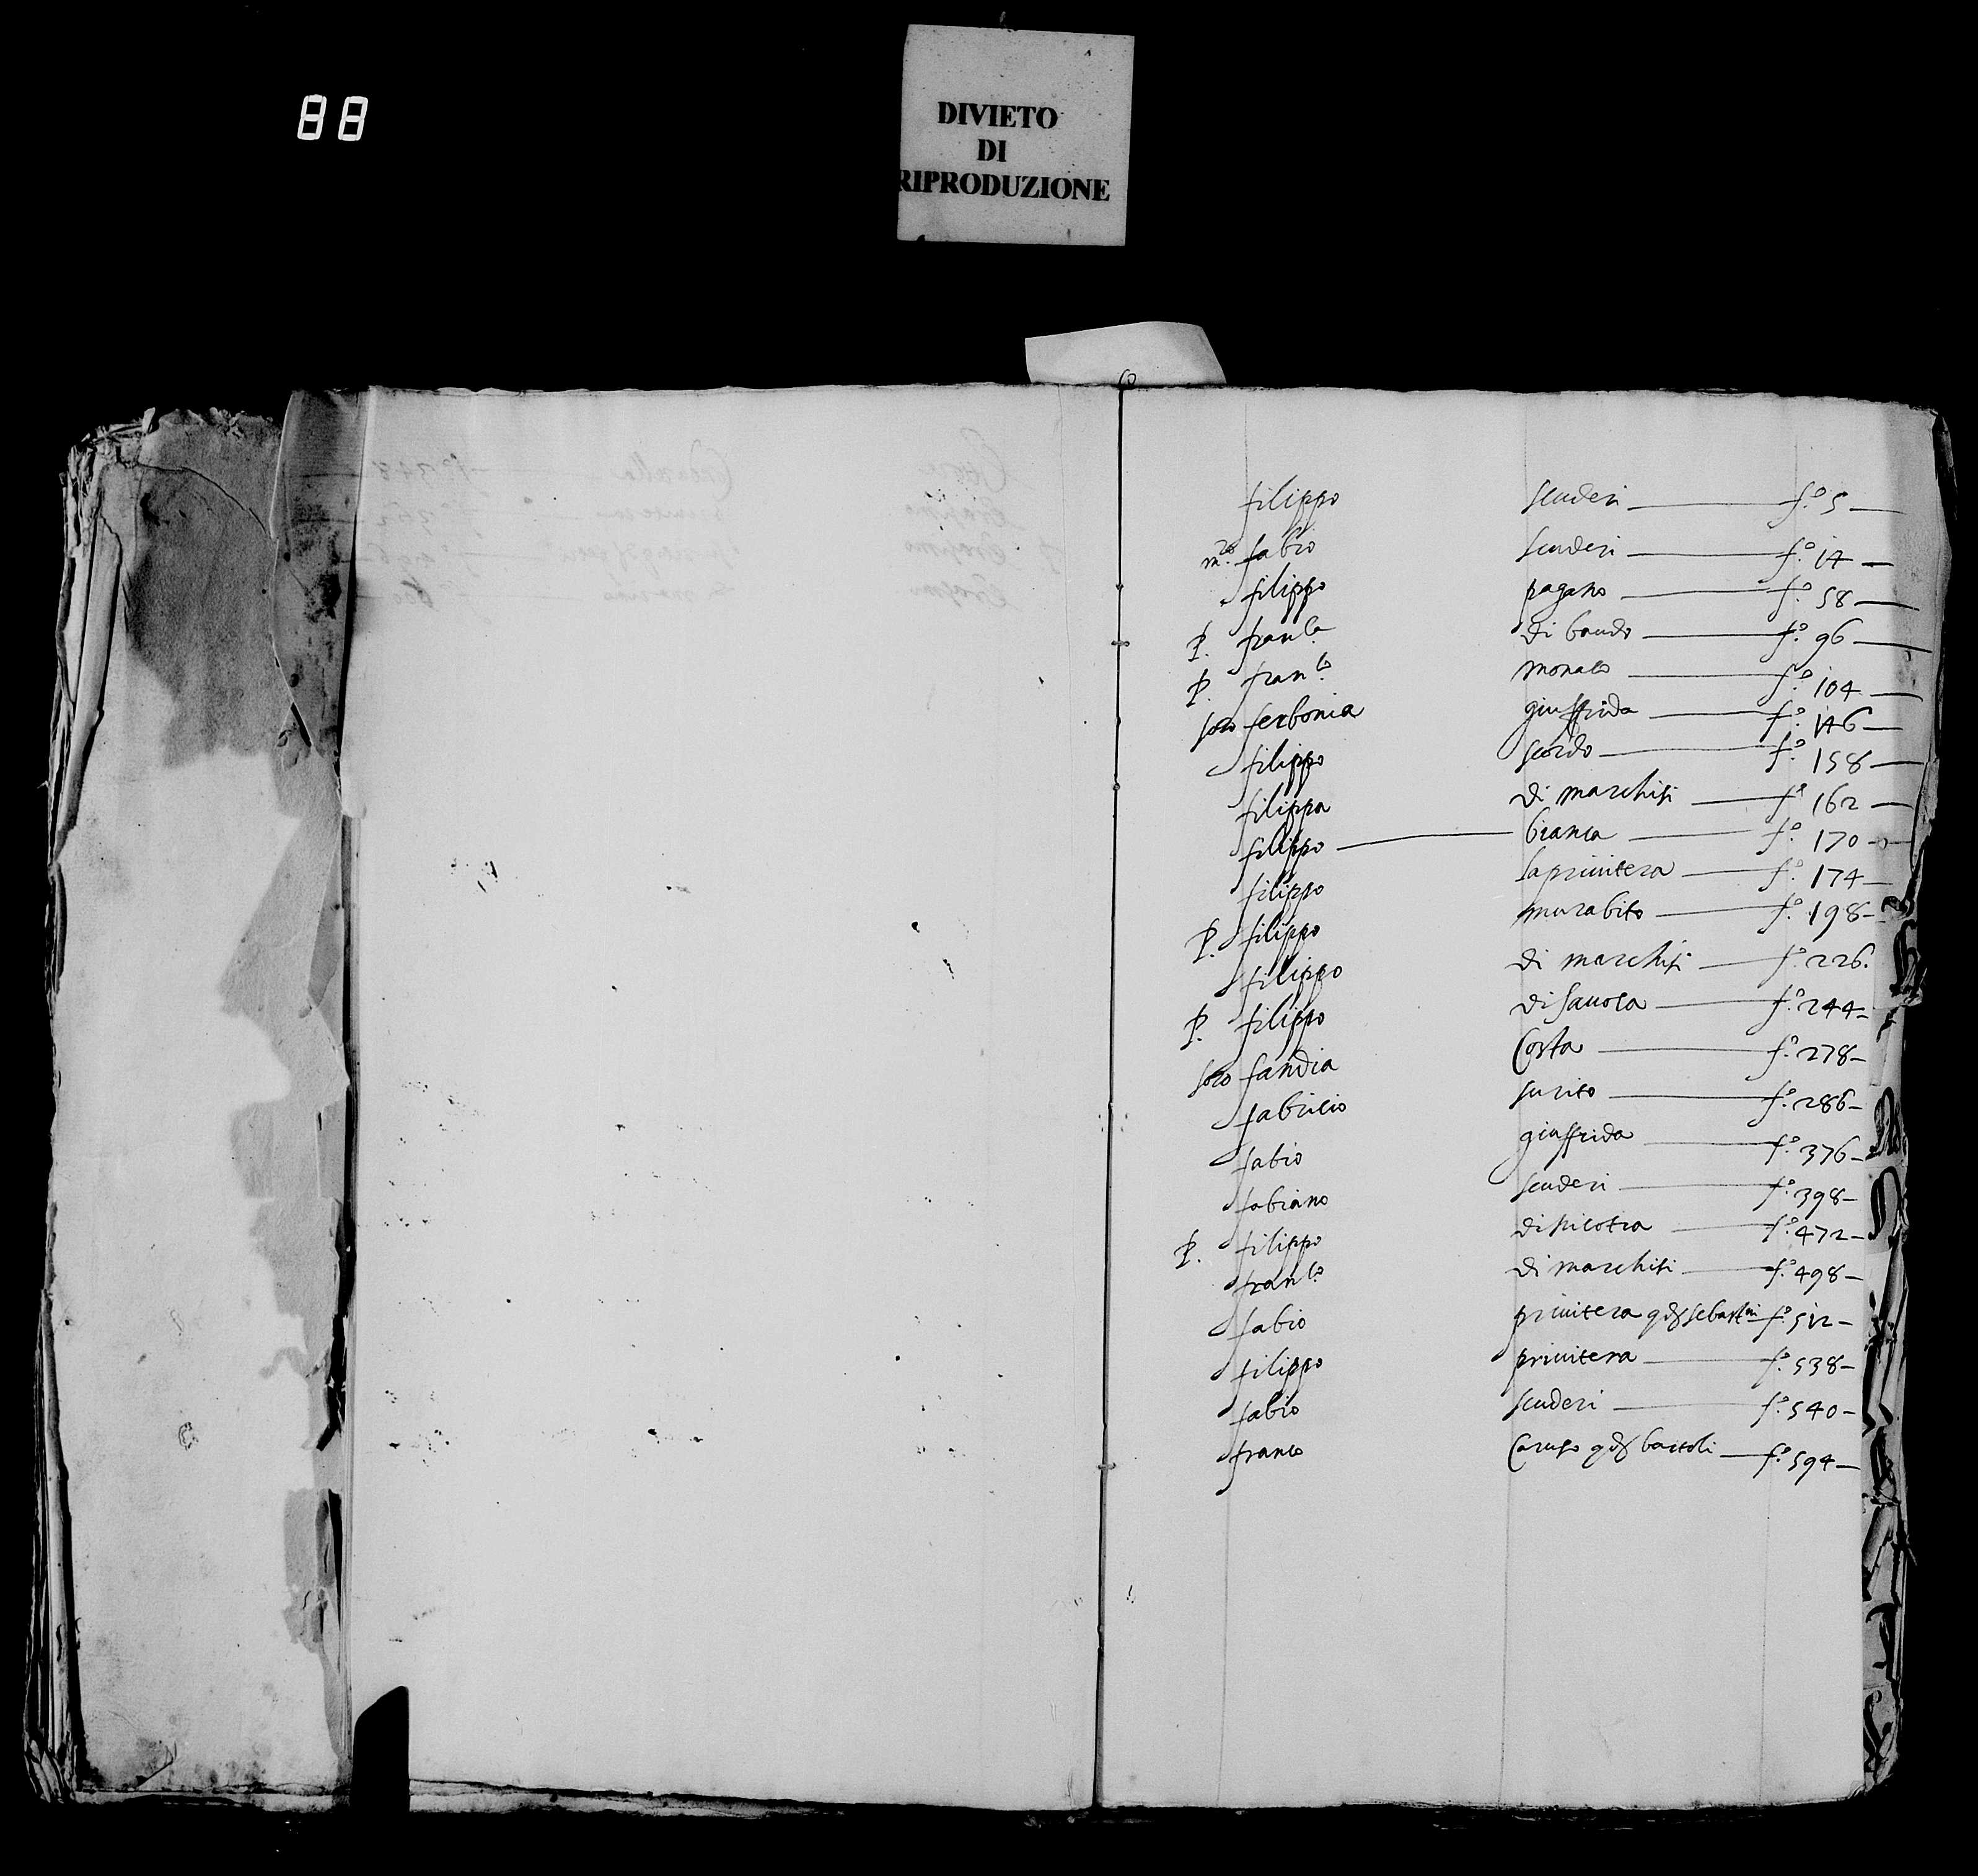 88
DIVIETO
DI
RIPRODUZIONE
filippo scuderi f.o 5
m.ro fabio scuderi f.o 14
filippo pagano f.o 58
P. fran.ca di baudo f.o 96
P. fran.co monaco f.o 104
soro ferbonia giuffrida f.o 146
filippo scordo f.o 158
filippa di marchisi f.o 162
filippo bianca f.o 170
filippo la priuitera f.o 174
P. filippo murabito f.o 198
filippo di marchisi f.o 226.
P. filippo di sauoca f.o 244
soro fandia Costa f.o 278
fabricio f.o 286
fabio giuffrida f.o 376
fabiano scuderi f.o 398
P. filippo di nicotra f.o 472
fran.co di marchisi f.o 498
fabio priuitera f.o 512
filippo priuitera f.o 538
fabio scuderi f.o 540
franco Caruso bartoli f.o 594